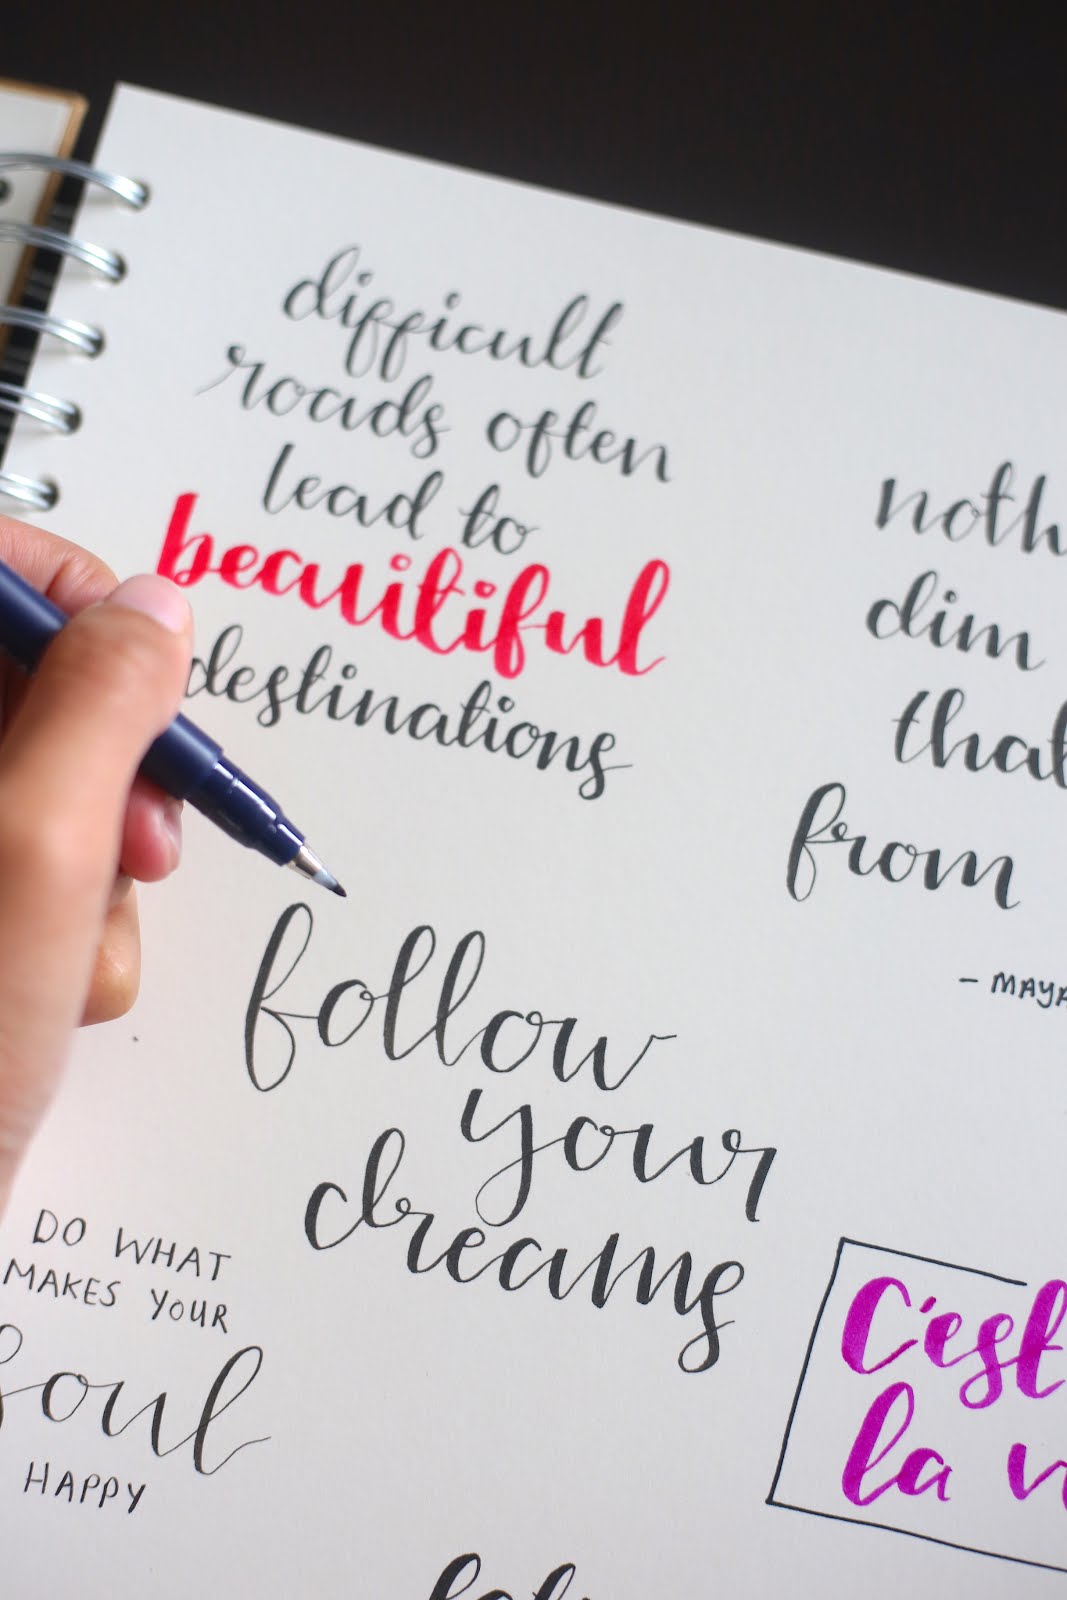 difficult
roads often
lead to
beautiful
destinations
noth
dim
that
from
- MAYA
follow
your
dreams
DO WHAT
MAKES YOUR
Soul
HAPPY
C'est
la v